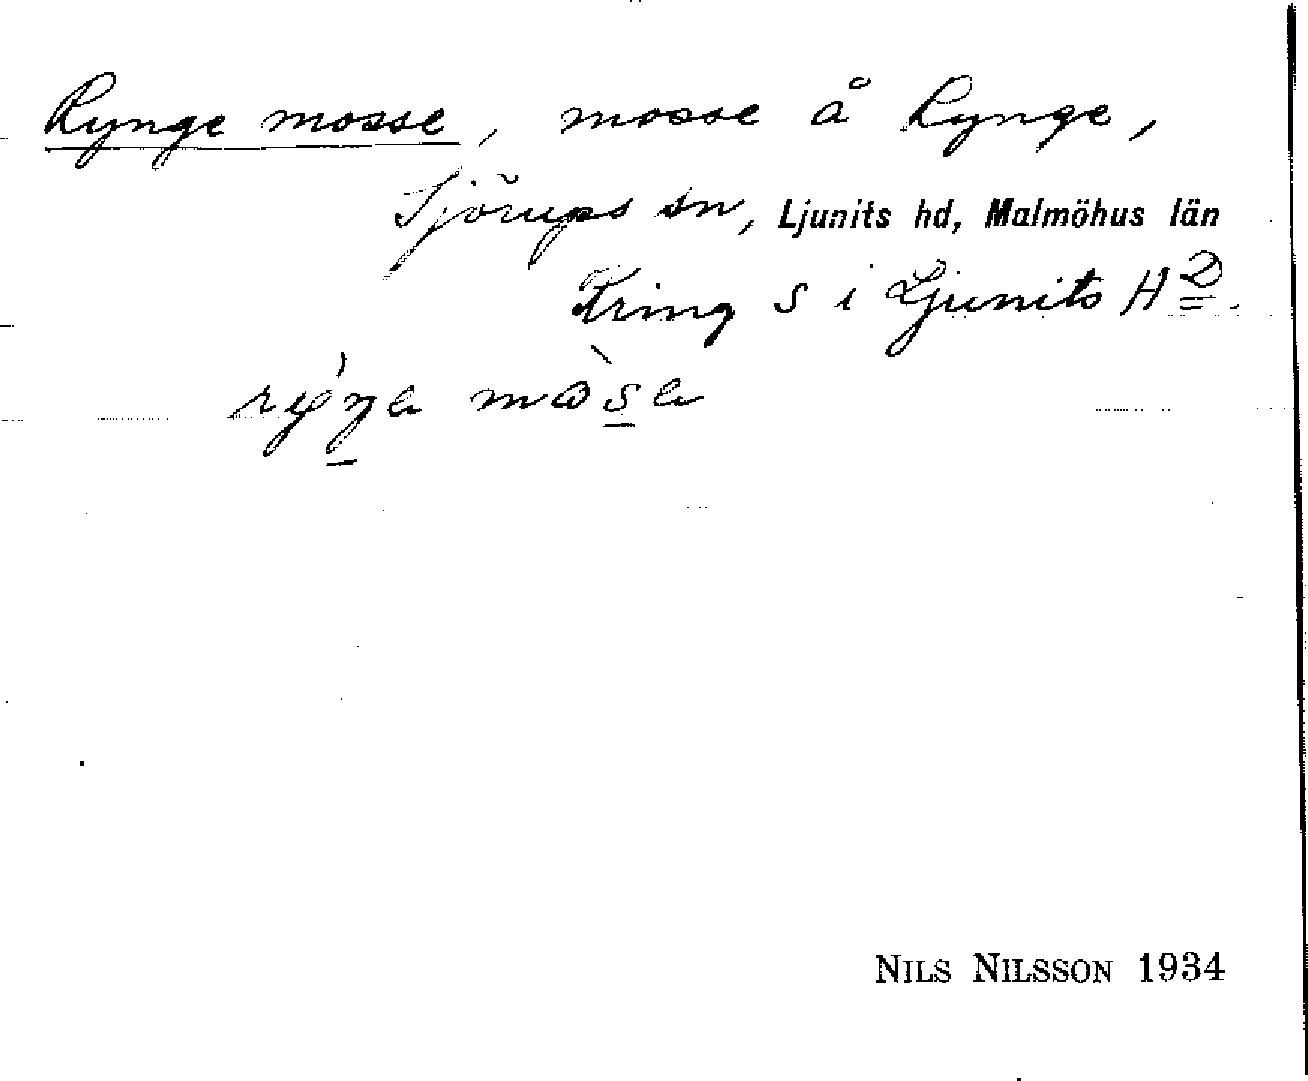 Rynge mosse, mosse å Rynge,
Sjörups sn, Ljunits hd, Malmöhus län
Kring S i Ljunits H<sup>D</sup>.
NILS NILSSON 1934